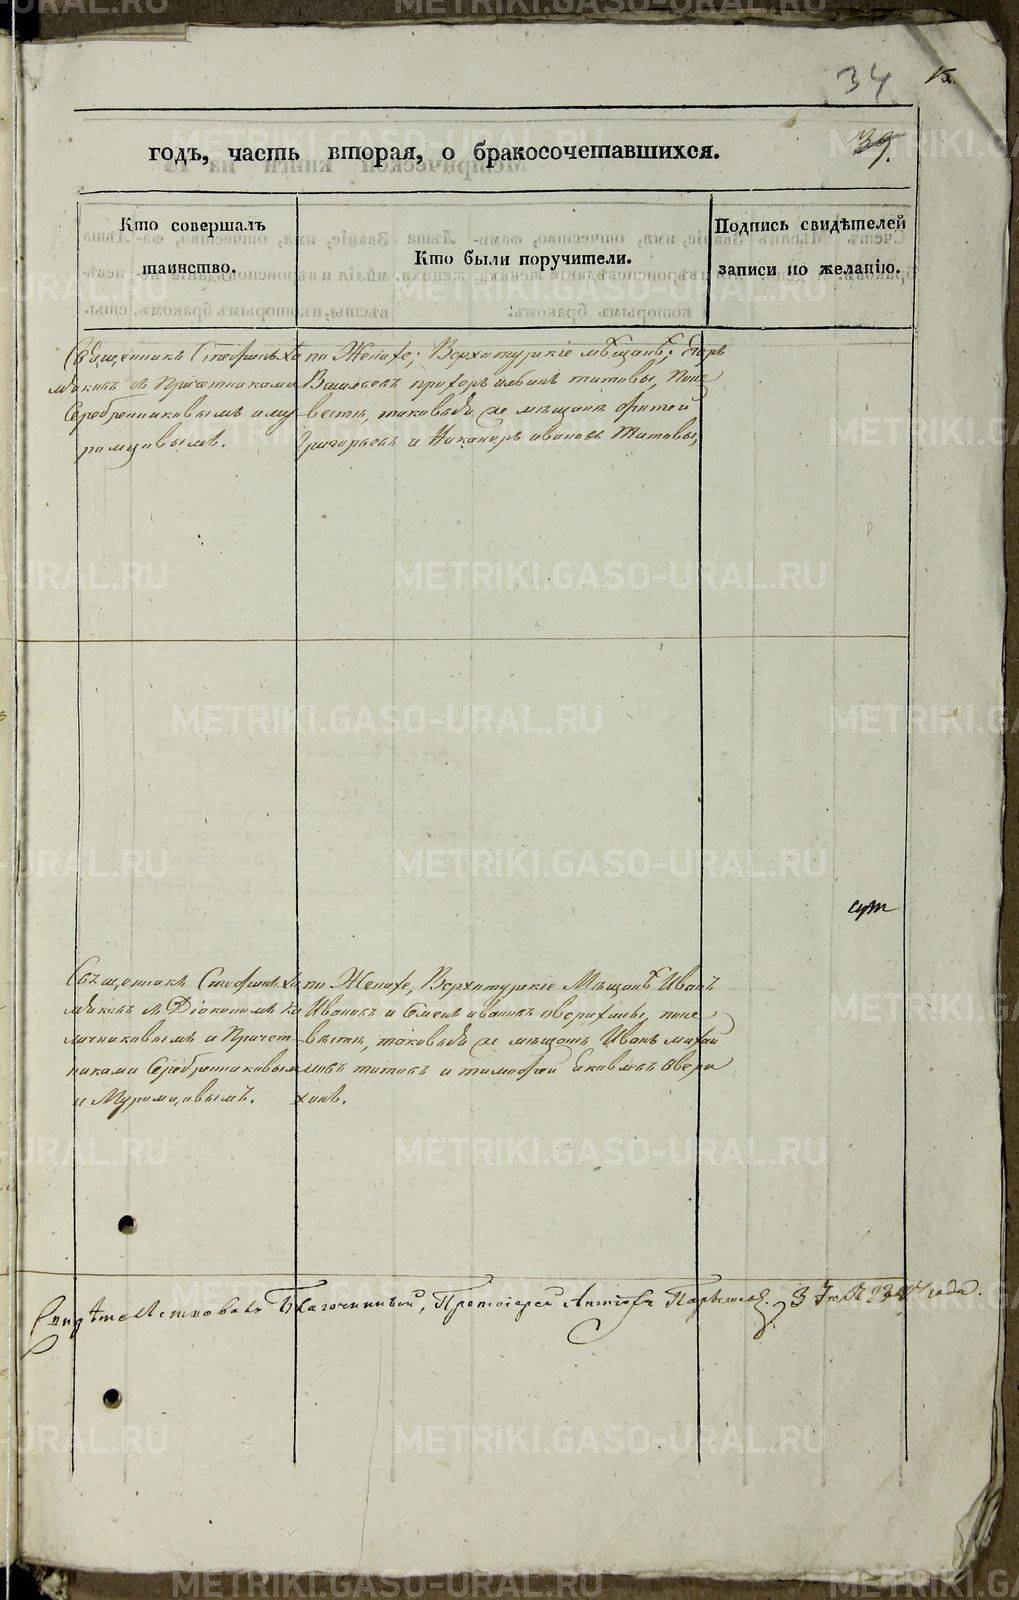 34
39.
годъ, часть вторая, о бракосочетавшихся.
Кто совершалъ
таинство.
Кто были поручители.
Подпись свидѣтелей
записи по желанію.
Священникъ Стефанъ Хо
мяковъ съ Причетниками
Серебренниковымъ и Му
ромцовымъ.
по Женихе; Верхотурскіе мѣщанѣ; Егоръ
Васильевъ прохоръ титовы, Поне
вестѣ, таковыя же мѣщане
Григорьевъ и Никаноръ ивановъ Титовы,
Священникъ Стефанъ Хо
мяковъ съ Діакономъ Ка
личниковымъ и Причет
никами Серебренниковым
и Муромцовымъ.
по Женихе, Верхотурскіе Мѣщанѣ Иванъ
Ивановъ и Семенъ ивановъ Аверихины, поне
вѣстѣ, таковыя же мѣщане Иванъ михай
ловъ титовъ и тимофей Яковлевъ Авери
хинъ.
Свидѣтельствовалъ Благочинный, Протоіерей 3 года.
METRIKI.GASO-URAL.RU